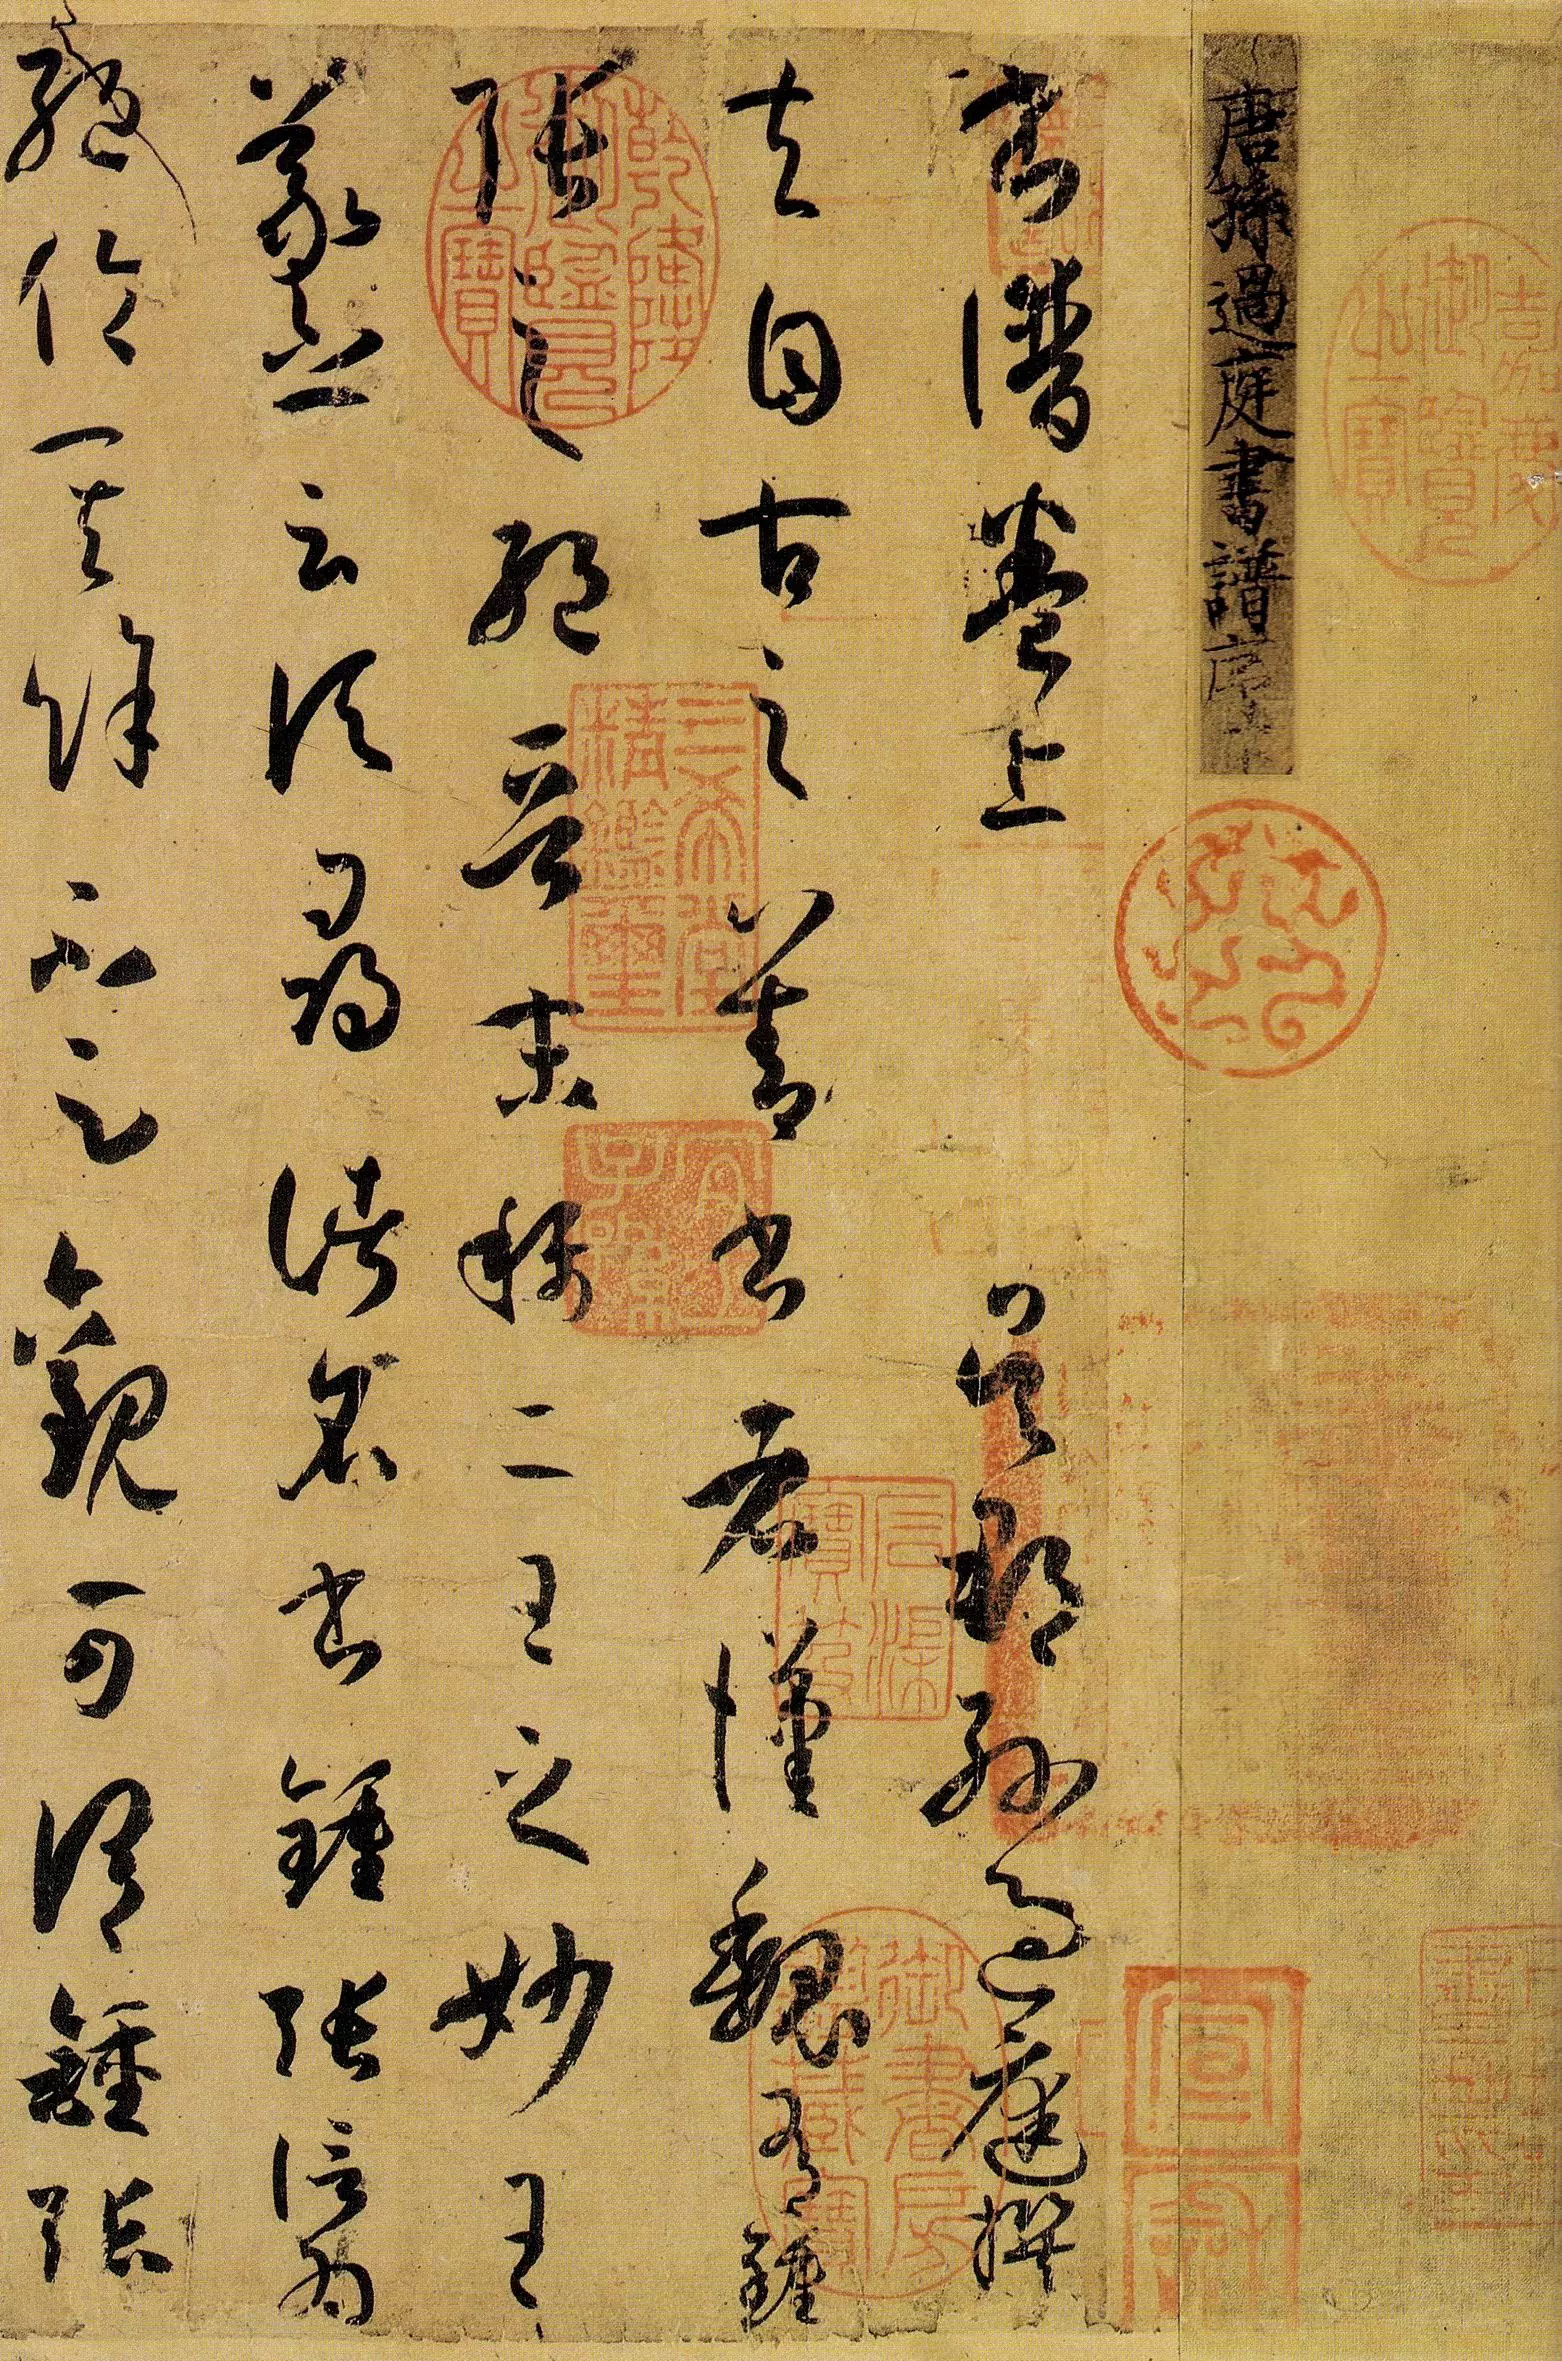 嘉慶御覽之寶
唐孫過庭書譜序
書譜卷上 吳郡孫過庭撰
夫自古之善書者漢魏有鍾
張之絕晉末稱二王之妙王
羲之云頃尋諸名書鍾張信為
絕倫其餘不足觀可謂鍾張
乾隆御覽之寶
三希堂精鑑璽
宜子孫
石渠寶笈
御書房鑑藏寶
宣和